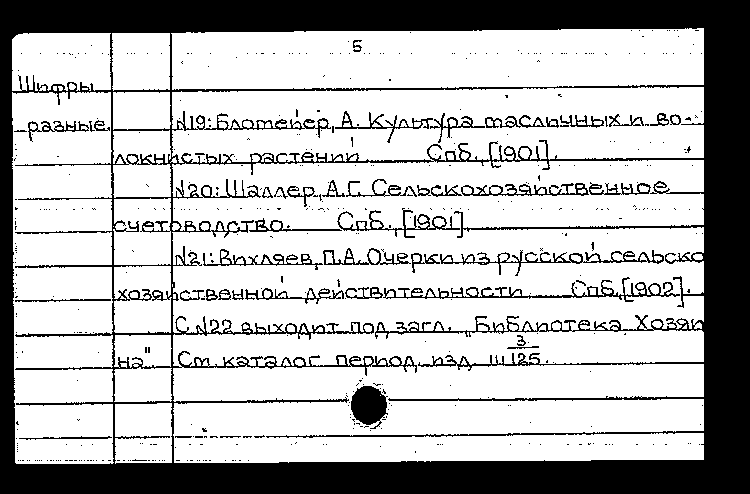 5
Шифры
разные. №19: Бломейер, А. Культура масличных и во-
локнистых растений. Спб., [1901].
№20: Шаллер, А.Г. Сельскохозяйственное
счетоводство. Спб., [1901].
№21: Вихляев, П.А. Очерки из русской сельско
хозяйственной действительности. Спб. [1902].
С №22 выходит под загл. „Библиотека Хозяи
на". См. каталог период. изд. 3/125.